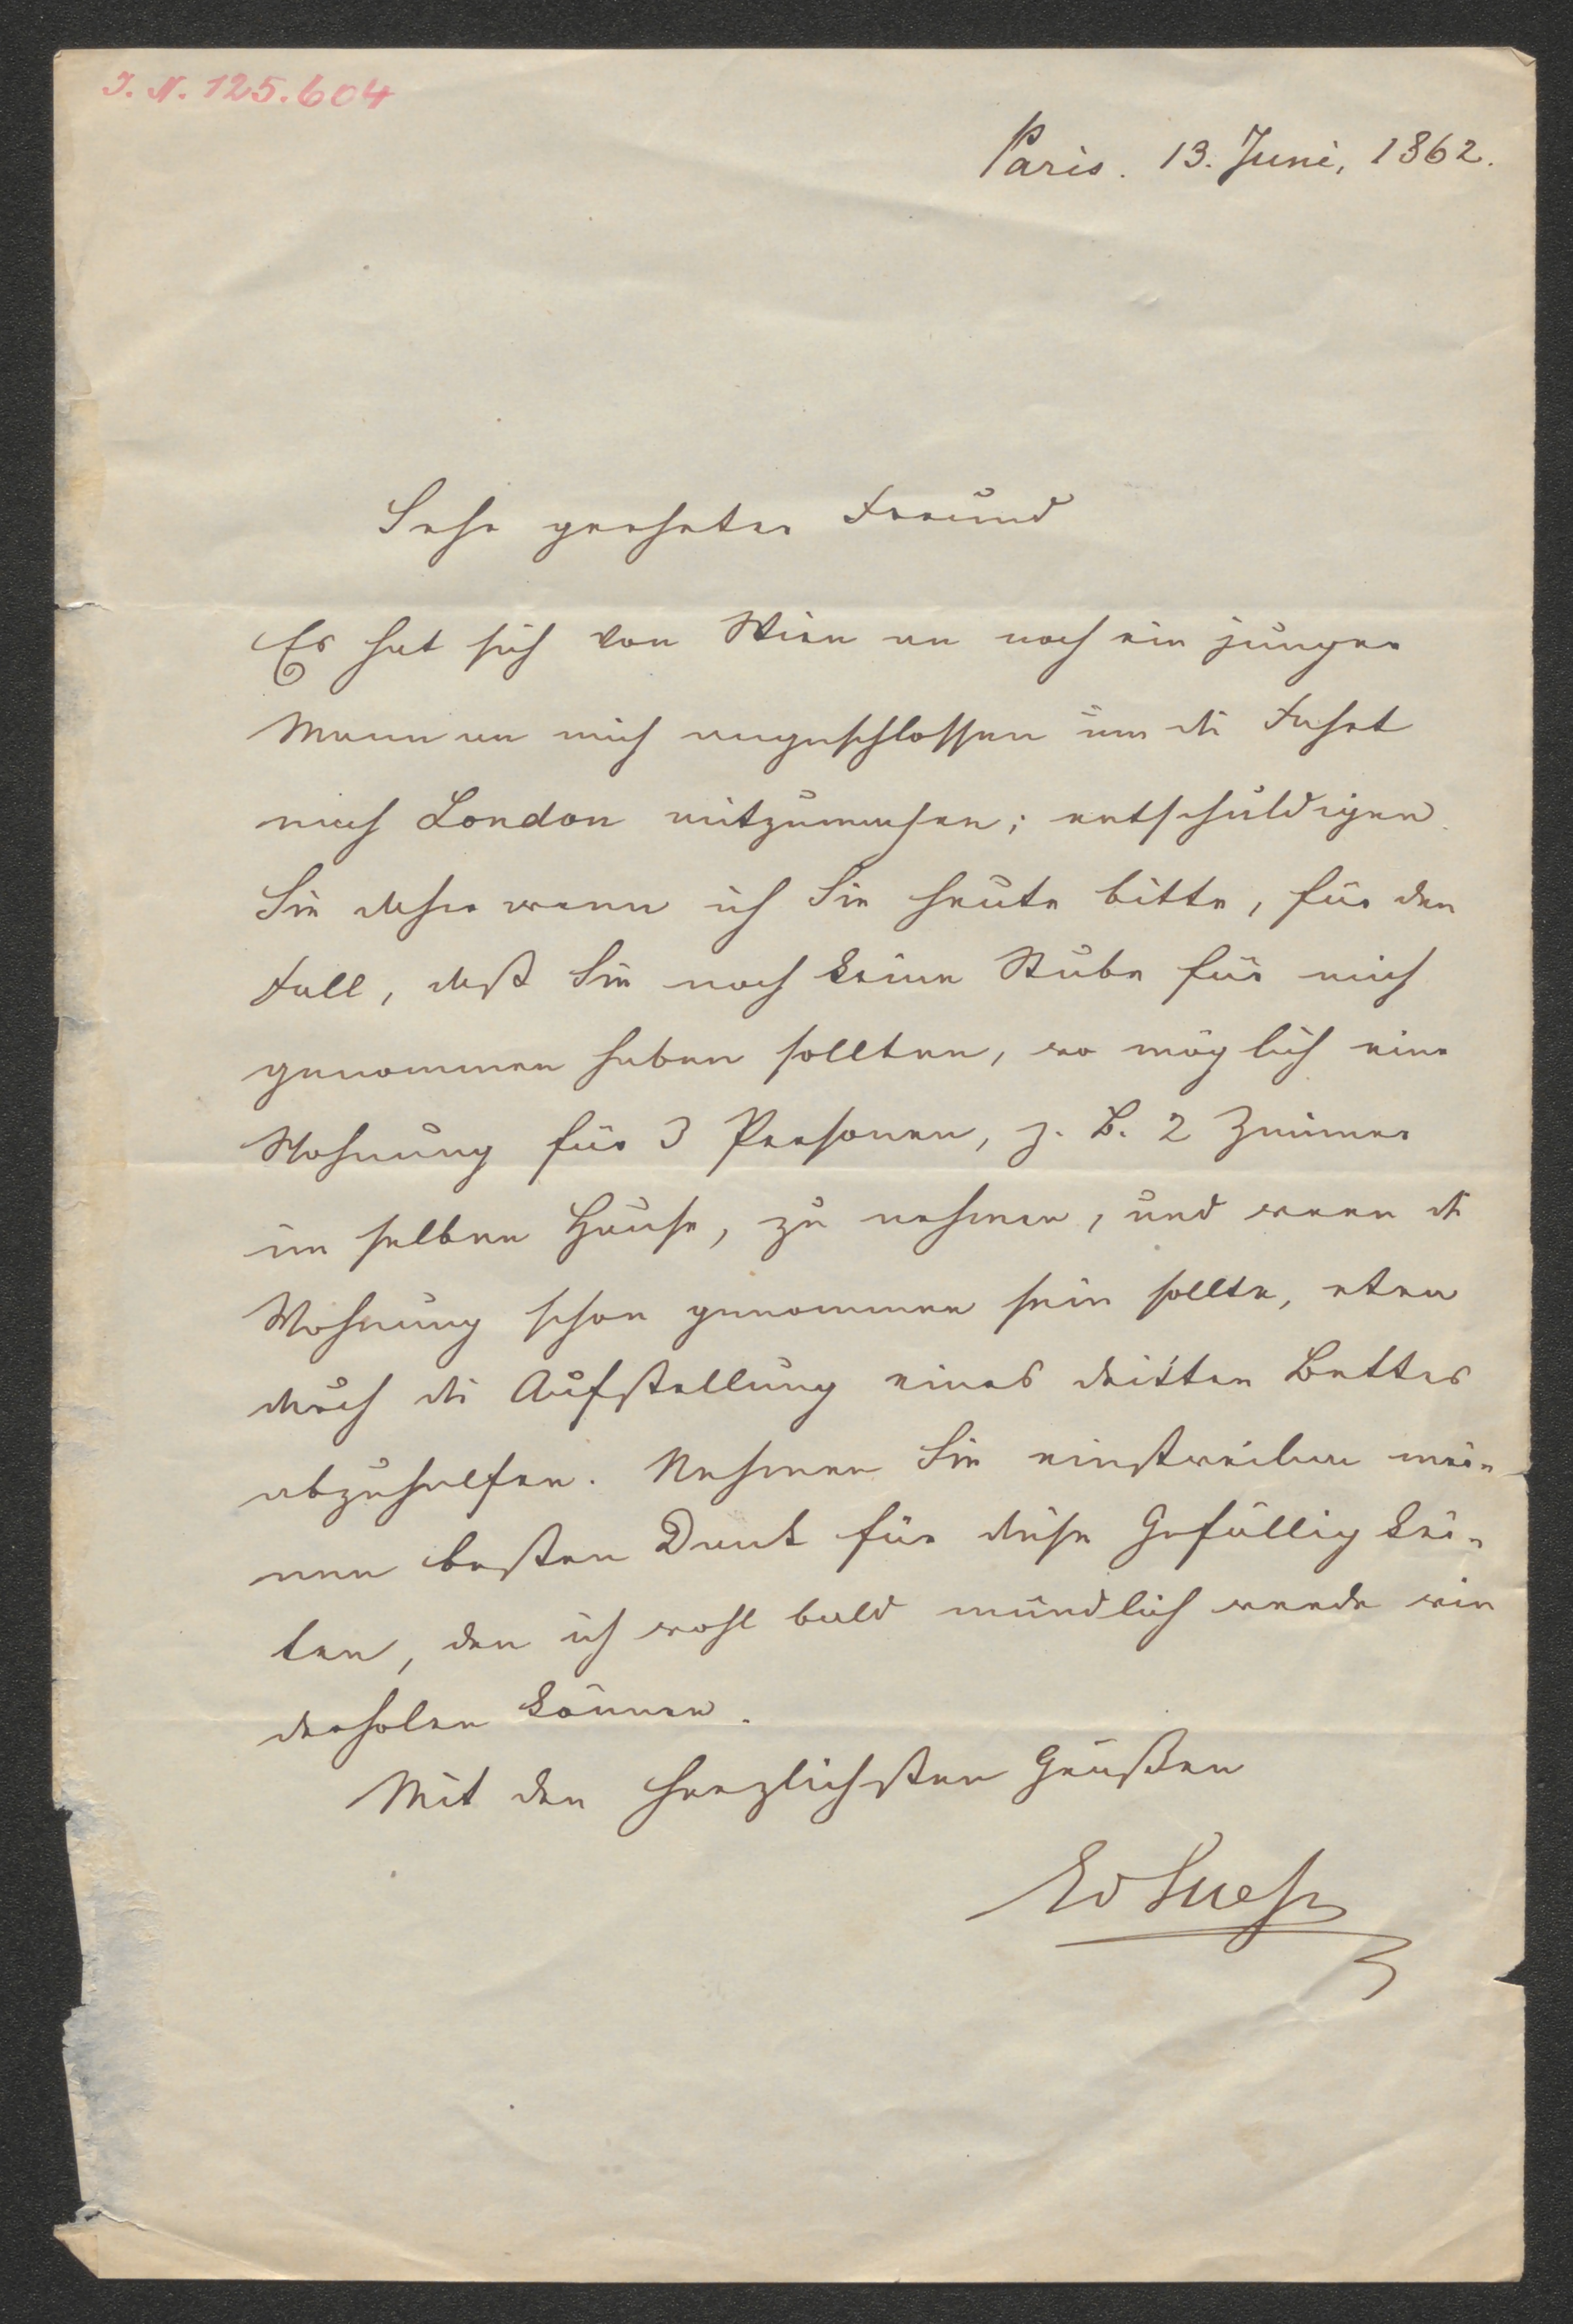 J. N. 125.604
Paris. 13. Juni, 1862.
Sehr geehrter Freund
Es hat sich von Wien an noch ein junger
Mann an mich angeschlossen um die Fahrt
nach London mitzumachen; entschuldigen
Sie daher wenn ich Sie heute bitte, für den
Fall, daß Sie noch keine Stube für mich
genommen haben sollten, wo möglich eine
Wohnung für 3 Personen, z. B. 2 Zimmer
im selben Hause, zu nehmen, und wenn die
Wohnung schon genommen sein sollte, etwa
durch die Aufstellung eines dritten Bettes
abzuhelfen. Nehmen Sie einstweilen mei-
nen besten Dank für diese Gefälligkei-
ten, den ich wohl bald mündlich werde wie
derholen können.
Mit den herzlichsten Grüßen
Ed Suess